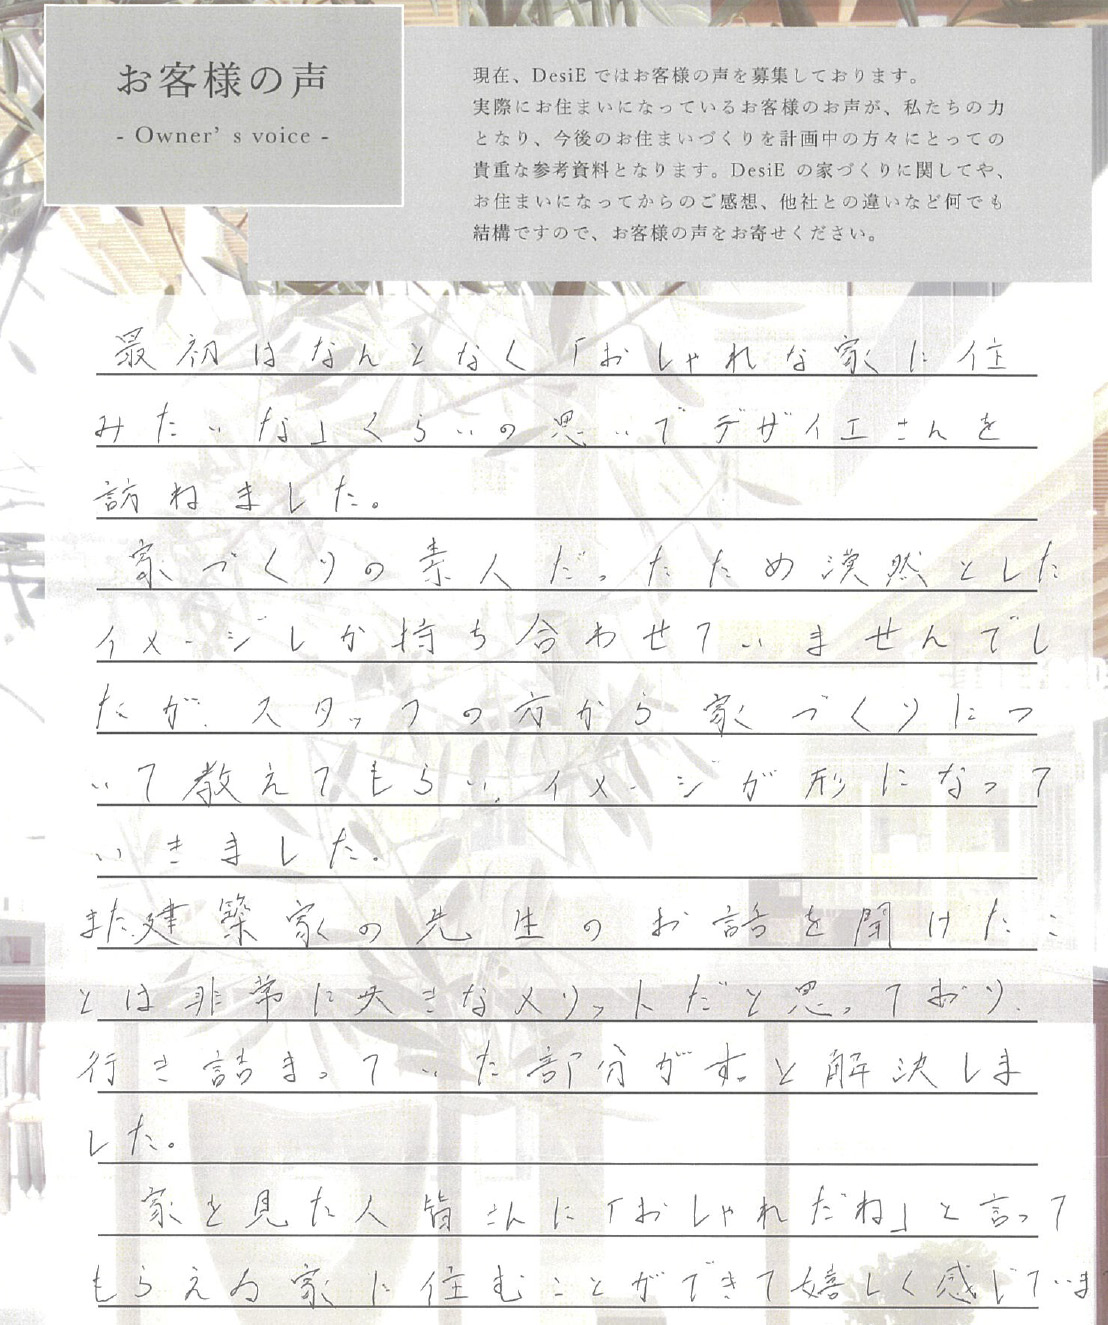 お客様の声
- Owner’ s voice -
現在、DesiE ではお客様の声を募集しております。
実際にお住まいになっているお客様のお声が、私たちの力
となり、今後のお住まいづくりを計画中の方々にとっての
貴重な参考資料となります。DesiE の家づくりに関してや、
お住まいになってからのご感想、他社との違いなど何でも
結構ですので、お客様の声をお寄せください。
最初はなんとなく「おしゃれな家に住
みたいな」くらいの思いでデザイエさんを
訪ねました。
家づくりの素人だったため漠然とした
イメージしか持ち合わせていませんでし
たが、スタッフの方から家づくりにつ
いて教えてもらい、イメージが形になって
いきました。
また、建築家の先生のお話を聞けたこ
とは非常に大きなメリットだと思っており、
行き詰まっていた部分がすっと解決しま
した。
家を見た人皆さんに「おしゃれだね」と言って
もらえる家に住むことができて嬉しく感じていま